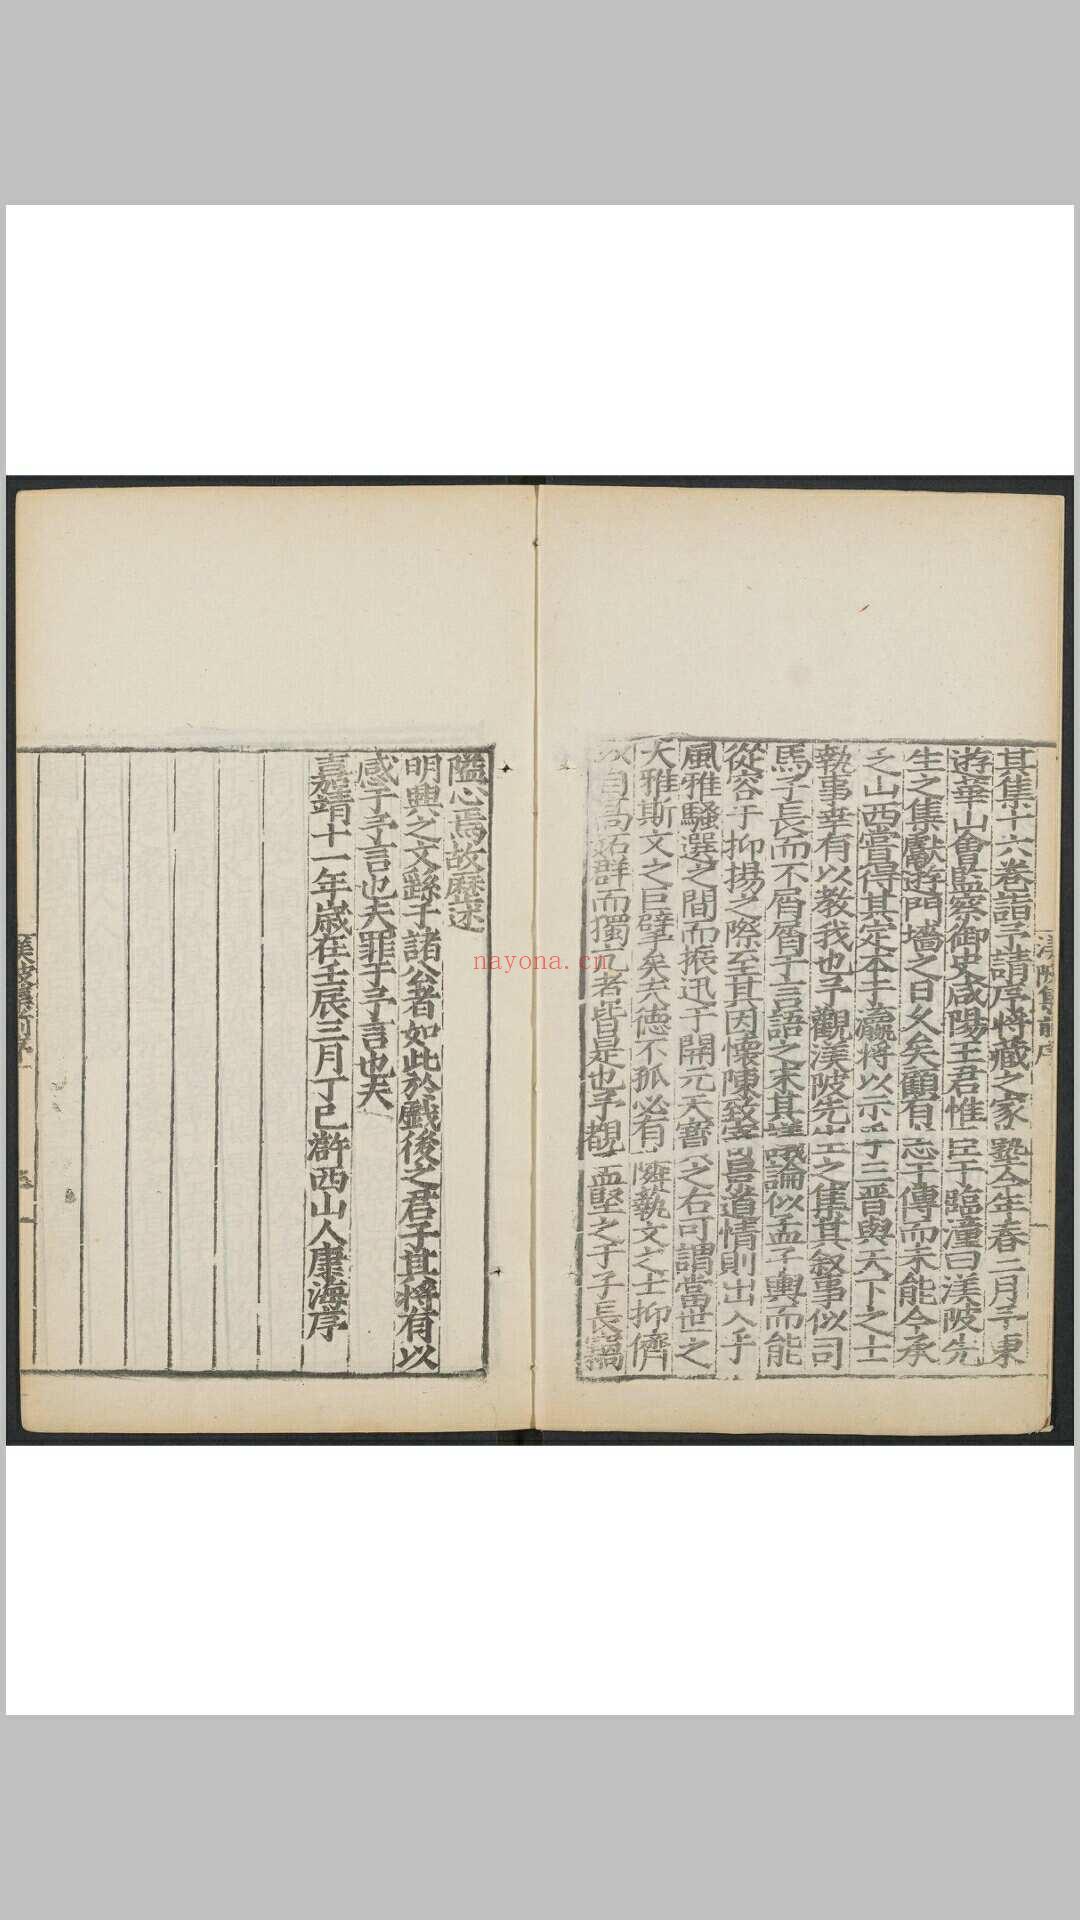 渼陂集前序
其集十六卷詣予請序將藏之家塾今年春二月予東
遊華山會監察御史咸陽王君惟臣于臨潼曰渼陂先
生之集獻遊門墻之日久矣顧有志于傳而未能今承
乏山西嘗得其定本于瀛將以示乎三晉與天下之士
執事幸有以教我也予觀渼陂先生之集其叙事似司
馬子長而不屑屑于言語之末其議論似孟子輿而能
從容于抑揚之際至其因懷陳致寓景道情則出入乎
風雅騷選之間而振迅于開元天寶之右可謂當世之
大雅斯文之巨擘矣夫德不孤必有隣執文之士抑儕
以自高拓群而獨立者皆是也予觀孟堅之于子長竊
隘心焉故歷述
明興之文繇予諸公者如此於戲後之君子其將有以
感予予言也夫罪于予言也夫
嘉靖十一年歲在壬辰三月丁巳滸西山人康海序
渼陂集前序
nayona.cn